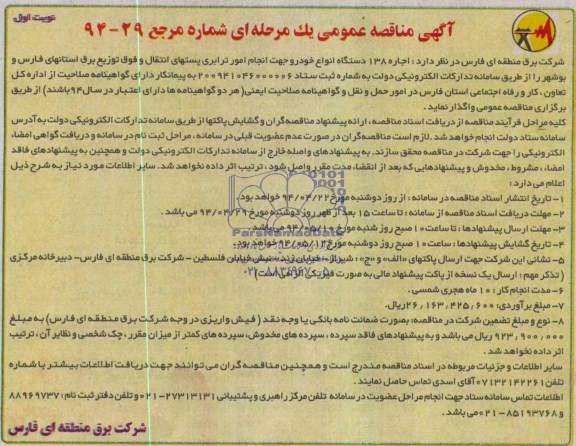 نوبت اول
آگهی مناقصه عمومی یک مرحله ای شماره مرجع ۲۹-۹۴
شرکت برق منطقه ای فارس در نظر دارد: اجاره ۱۳۸ دستگاه انواع خودرو جهت انجام امور ترابری پستهای انتقال و فوق توزیع برق استانهای فارس و
بوشهر را از طریق سامانه تدارکات الکترونیکی دولت به شماره ثبت ستاد ۲۰۰۹۴۱۰۴۶۰۰۰۰۰۶ به پیمانکار دارای گواهینامه صلاحیت از اداره کل
تعاون، کار و رفاه اجتماعی استان فارس در امور حمل و نقل و گواهینامه صلاحیت ایمنی (هر دو گواهینامه ها دارای اعتبار در سال ۹۴ باشند) از طریق
برگزاری مناقصه عمومی واگذار نماید.
کلیه مراحل فرآیند مناقصه از دریافت اسناد مناقصه، ارائه پیشنهاد مناقصه گران و گشایش پاکتها از طریق سامانه تدارکات الکترونیکی دولت به آدرس
سامانه ستاد دولت انجام خواهد شد. لازم است مناقصه گران در صورت عدم عضویت قبلی در سامانه، مراحل ثبت نام در سامانه و دریافت گواهی امضاء
الکترونیکی را جهت شرکت در مناقصه محقق سازند. به پیشنهادهای واصله خارج از سامانه تدارکات الکترونیکی دولت و همچنین به پیشنهادهای فاقد
امضاء، مشروط، مخدوش و پیشنهادهایی که بعد از انقضاء مدت مقرر واصل شود، ترتیب اثر داده نخواهد شد. سایر اطلاعات مورد نیاز به شرح ذیل
اعلام می دارد:
۱- تاریخ انتشار اسناد مناقصه در سامانه: از روز دوشنبه مورخ ۹۴/۰۴/۲۲ خواهد بود.
۲- مهلت دریافت اسناد مناقصه از سامانه: تا ساعت ۱۵ بعد از ظهر روز دوشنبه مورخ ۹۴/۰۴/۲۹ می باشد.
۳- مهلت ارسال پیشنهادها: تا ساعت ۱۰ صبح روز شنبه مورخ ۹۴/۰۵/۱۰ می باشد.
۴- تاریخ گشایش پیشنهادها: ساعت ۱۰ صبح روز دوشنبه مورخ ۹۴/۰۵/۱۲ خواهد بود.
۵- نشانی این شرکت جهت ارسال پاکتهای «الف» و «ج»: شیراز- خیابان زند- نبش خیابان فلسطین - شرکت برق منطقه ای فارس- دبیرخانه مرکزی
(تذکر مهم: ارسال یک نسخه از پاکت پیشنهاد مالی به صورت فیزیکی الزامی است)
۶- مدت انجام کار: ۱۰ ماه هجری شمسی.
۷- مبلغ برآوردی: ۲۶,۱۶۳,۴۲۵,۶۰۰ ریال.
۸- نوع و مبلغ تضمین شرکت در مناقصه: بصورت ضمانت نامه بانکی یا وجه نقد (فیش واریزی در وجه شرکت برق منطقه ای فارس) به مبلغ
۹۲۳,۹۰۰,۰۰۰ ریال می باشد و به پیشنهادهای فاقد سپرده، سپرده های مخدوش، سپرده های کمتر از میزان مقرر، چک شخصی و نظایر آن، ترتیب
اثر داده نخواهد شد.
سایر اطلاعات و جزئیات مربوطه در اسناد مناقصه مندرج است و همچنین مناقصه گران می توانند جهت دریافت اطلاعات بیشتر با شماره
تلفن ۰۷۱۳۲۱۴۲۲۶۱ آقای اسدی تماس حاصل نمایند.
اطلاعات تماس سامانه ستاد جهت انجام مراحل عضویت در سامانه تلفن مرکز راهبری و پشتیبانی ۲۷۳۱۳۱۳۱-۰۲۱ و تلفن دفتر ثبت نام: ۸۸۹۶۹۷۳۷
و ۸۵۱۹۳۷۶۸-۰۲۱ می باشد.
شرکت برق منطقه ای فارس
ParsNamadData